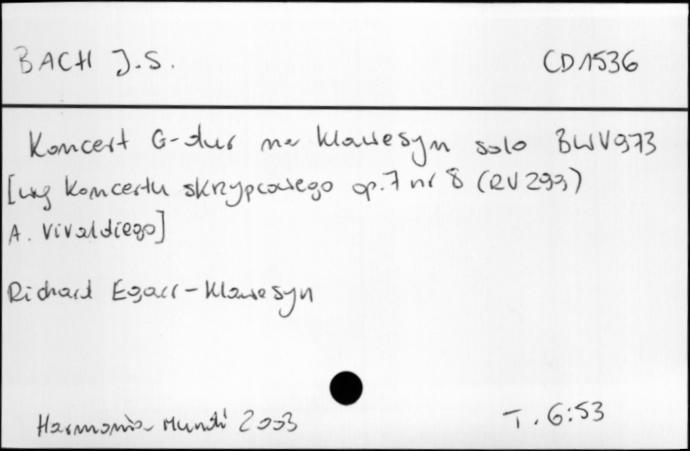 BACH J.S.
CD 1536
Koncert G-dur na klawesyn solo BWV 973
[wg koncertu skrzypcowego op.7 nr 8 (RV 299)
A. Vivaldiego]
Richard Egarr - klawesyn
Harmonia Mundi 2003
T. 6:53